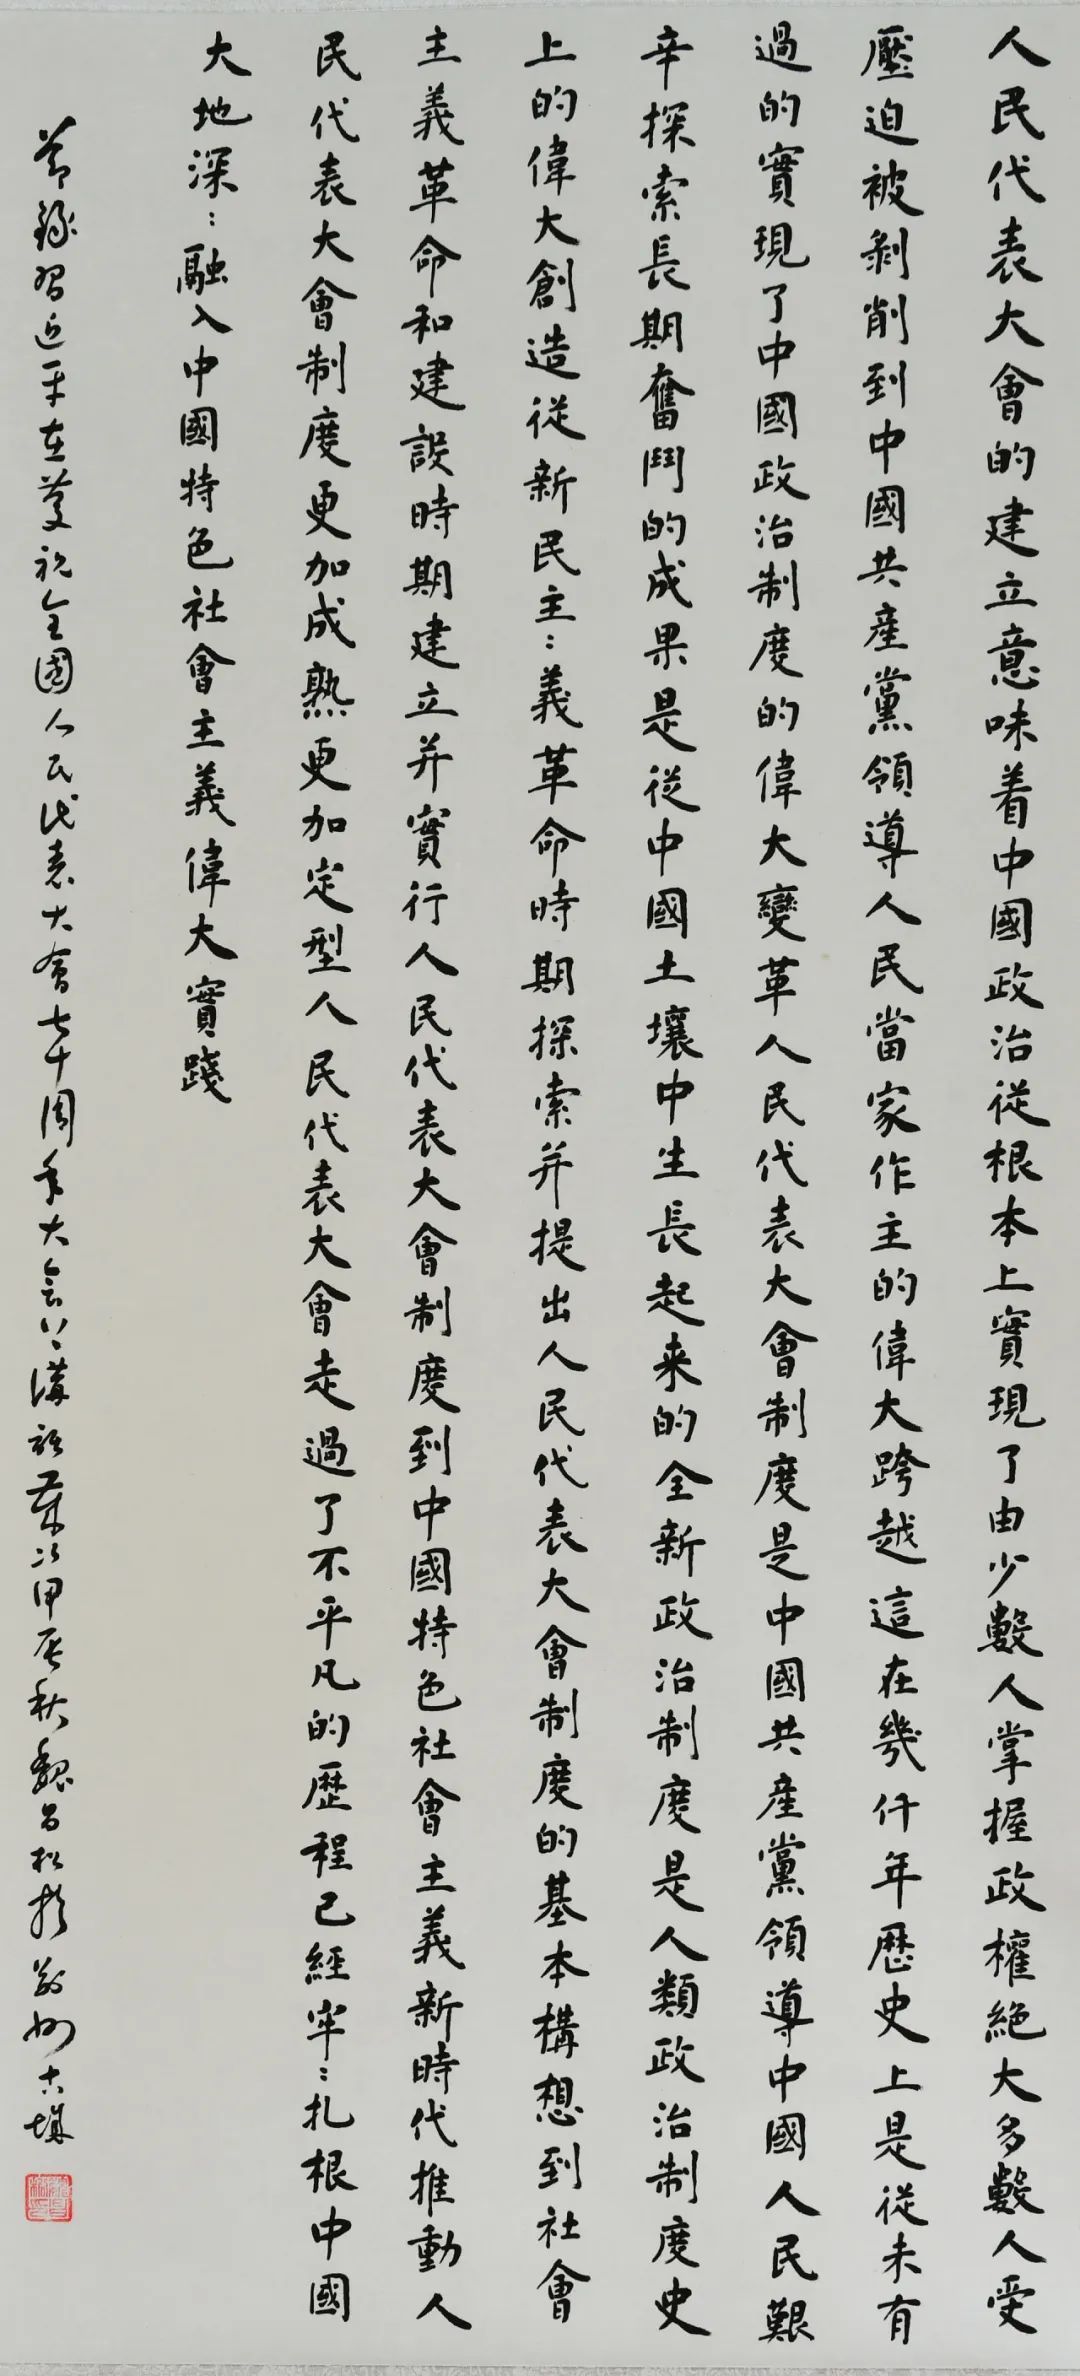 人民代表大會的建立意味着中國政治從根本上實現了由少數人掌握政權絕大多數人受
壓迫被剥削到中國共産黨領導人民當家作主的偉大跨越這在幾仟年歷史上是從未有
過的實現了中國政治制度的偉大變革人民代表大會制度是中國共産黨領導中國人民艱
辛探索長期奮鬥的成果是從中國土壤中生長起来的全新政治制度是人類政治制度史
上的偉大創造從新民主〻義革命時期探索并提出人民代表大會制度的基本構想到社會
主義革命和建設時期建立并實行人民代表大會制度到中國特色社會主義新時代推動人
民代表大會制度更加成熟更加定型人民代表大會走過了不平凡的歷程已經牢〻扎根中國
大地深〻融入中國特色社會主義偉大實踐
節錄習近平在慶祝全國人民代表大會七十周年大會上講話歲次甲辰秋魏昌松於